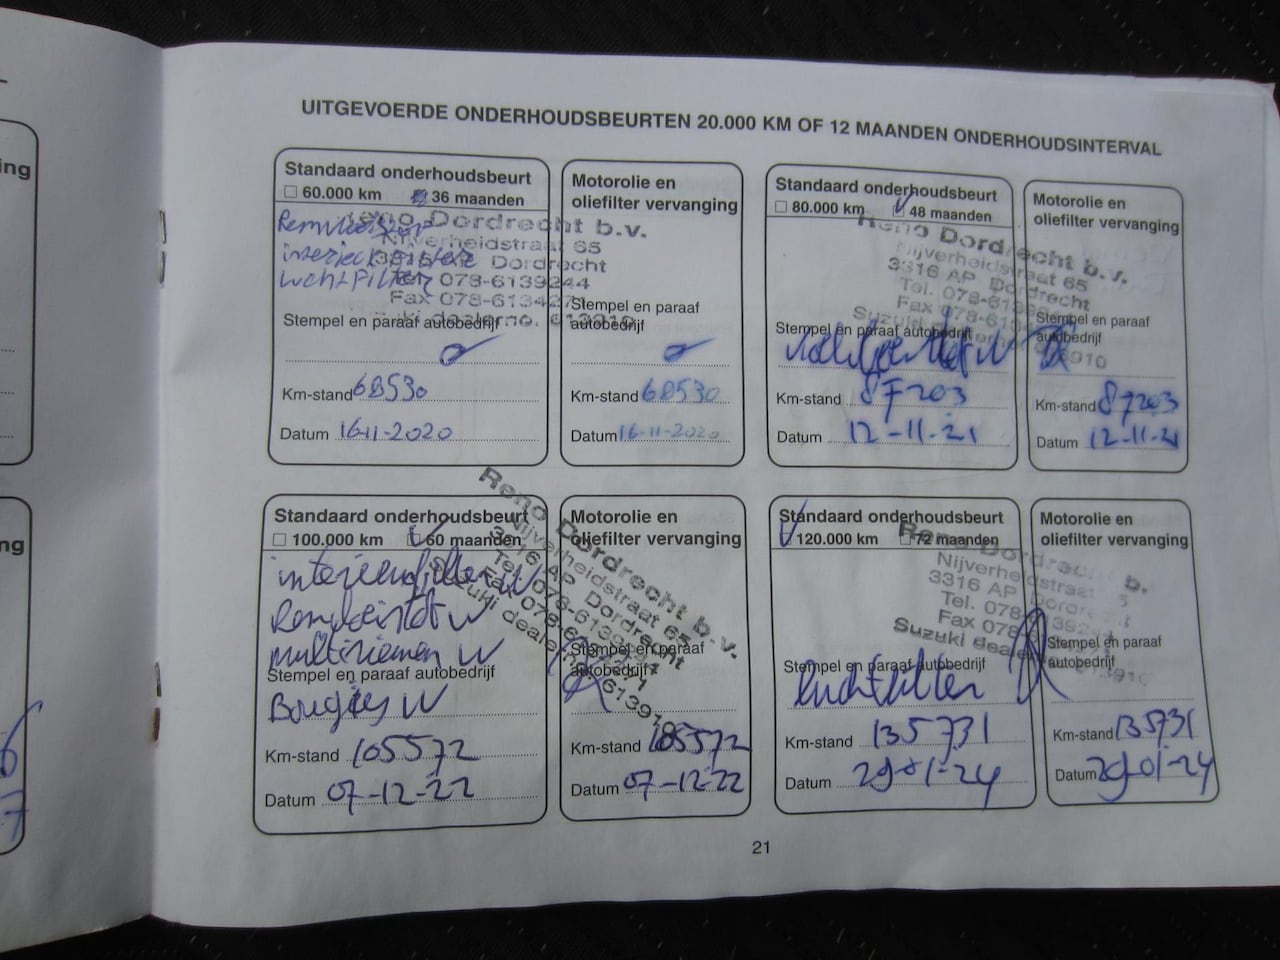 ing
ng
6
7
UITGEVOERDE ONDERHOUDSBEURTEN 20.000 KM OF 12 MAANDEN ONDERHOUDSINTERVAL
Standaard onderhoudsbeurt
60.000 km 36 maanden
Remvloeistof
interieurfilter
Luchtfilter
Reno Dordrecht b.v.
Nijverheidstraat 65
3316 AP Dordrecht
Tel. 078-6139244
Fax 078-6134271
Suzuki dealerno. 613910
Stempel en paraaf autobedrijf
Km-stand 68530
Datum 16-11-2020
Motorolie en
oliefilter vervanging
Stempel en paraaf
autobedrijf
Km-stand 68530
Datum 16-11-2020
Standaard onderhoudsbeurt
80.000 km 48 maanden
Reno Dordrecht b.v.
Nijverheidstraat 65
3316 AP Dordrecht
Tel. 078-6139
Fax 078-6134
Suzuki 613910
Stempel en paraaf autobedrijf
Km-stand 87203
Datum 12-11-21
Motorolie en
oliefilter vervanging
Stempel en paraaf
autobedrijf
Km-stand 87203
Datum 12-11-21
Standaard onderhoudsbeurt
100.000 km 60 maanden
interieurfilter W
Remvloeistof W
multiriemen W
Stempel en paraaf autobedrijf
Bougies W
Km-stand 105572
Datum 07-12-22
Reno Dordrecht b.v.
Nijverheidstraat 65
3316 AP Dordrecht
Tel. 078-6139244
Fax 078-6134271
Suzuki dealerno. 613910
Motorolie en
oliefilter vervanging
Stempel en paraaf
autobedrijf
Km-stand 105572
Datum 07-12-22
Standaard onderhoudsbeurt
120.000 km 72 maanden
Reno Dordrecht b.v.
Nijverheidstraat
3316 AP Dordrecht
Tel. 078
Fax 078
Suzuki dealer 613910
Stempel en paraaf autobedrijf
luchtfilter
Km-stand 135731
Datum 29-01-24
Motorolie en
oliefilter vervanging
Stempel en paraaf
autobedrijf
Km-stand 135731
Datum 29-01-24
21